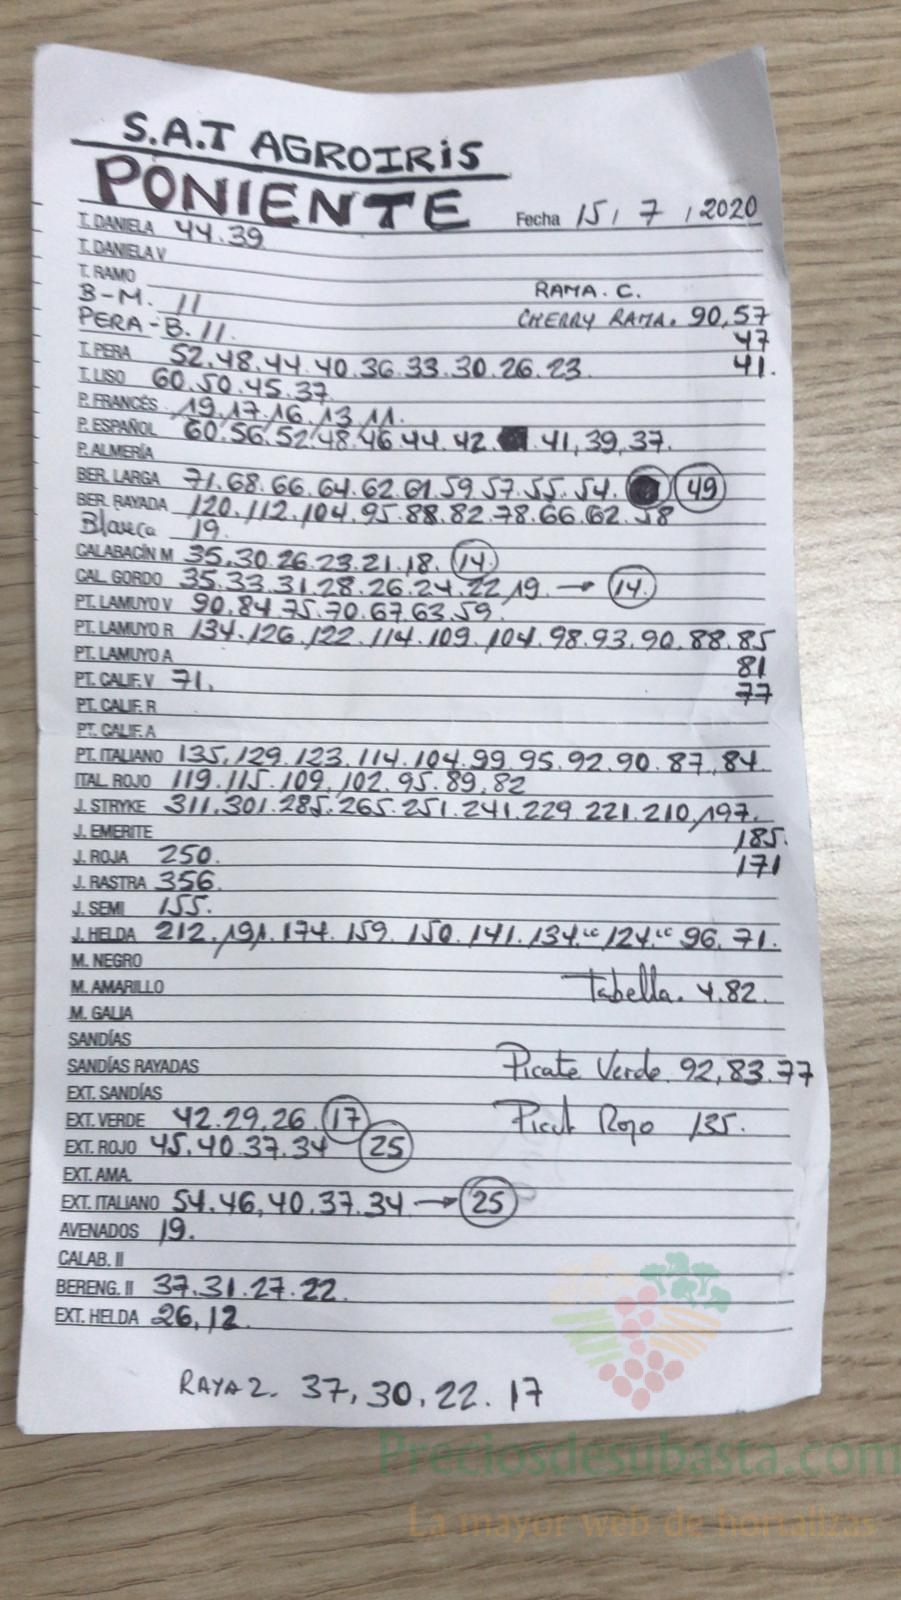 S.A.T AGROIRIS
PONIENTE
Fecha 15 / 7 / 2020
T. DANIELA 44.39
T. DANELA V
T. RAMO
RAMA. C.
B-M. 11
CHERRY RAMA. 90,57
PERA-B. 11.
47
T. PERA 52.48.44.40.36.33.30.26.23.
41.
T. LISO 60.50.45.37
P. FRANCÉS 19.17.16.13.11.
P. ESPAÑOL 60.56.52.48.46.44.42. .41,39,37.
P. ALMERÍA
BER. LARGA 71.68.66.64.62.61.59.57.55.54. 49
BER. RAYADA 120.112.104.95.88.82.78.66.62.58
Blanca 19.
CALABACÍN M 35,30.26.23.21.18. 14.
CAL. GORDO 35.33.31.28.26.24.22,19. → 14.
PT. LAMUYO V 90,84.75.70.67.63.59.
PT. LAMUYO R 134.126.122.114.109.104.98.93.90.88.85
PT. LAMUYO A
81
PT. CALIF. V 71.
77
PT. CALIF. R
PT. CALIF. A
PT. ITALIANO 135,129.123.114.104.99.95.92.90.87.84.
ITAL. ROJO 119.115.109,102.95.89,82
J. STRYKE 311.301.285.265.251.241.229.221.210,197.
J. EMERITE
185.
J. ROJA 250.
171
J. RASTRA 356.
J. SEMI 155.
J. HELDA 212.191.174.159.150.141.134."124." 96.71.
M. NEGRO
M. AMARILLO
Tabella. 4.82.
M. GALIA
SANDÍAS
SANDÍAS RAYADAS
Picate Verde. 92,83.77
EXT. SANDÍAS
EXT. VERDE 42.29,26. 17
Picut Rojo 135.
EXT. ROJO 45.40.37.34 25
EXT. AMA.
EXT. ITALIANO 54.46,40.37.34 → 25
AVENADOS 19.
CALAB. II
BERENG. II 37.31.27.22.
EXT. HELDA 26,12.
RAYA 2. 37,30,22.17
Preciosdesubasta.com
La mayor web de hortalizas